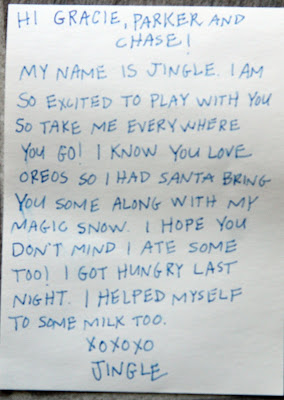 HI GRACIE, PARKER AND
CHASE!
MY NAME IS JINGLE. I AM
SO EXCITED TO PLAY WITH YOU
SO TAKE ME EVERYWHERE
YOU GO! I KNOW YOU LOVE
OREOS SO I HAD SANTA BRING
YOU SOME ALONG WITH MY
MAGIC SNOW. I HOPE YOU
DON'T MIND I ATE SOME
TOO! I GOT HUNGRY LAST
NIGHT. I HELPED MYSELF
TO SOME MILK TOO.
XOXOXO
JINGLE